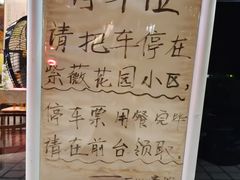 停车位
请把车停在
紫薇花园小区,
停车票用餐完毕
请在前台领取.